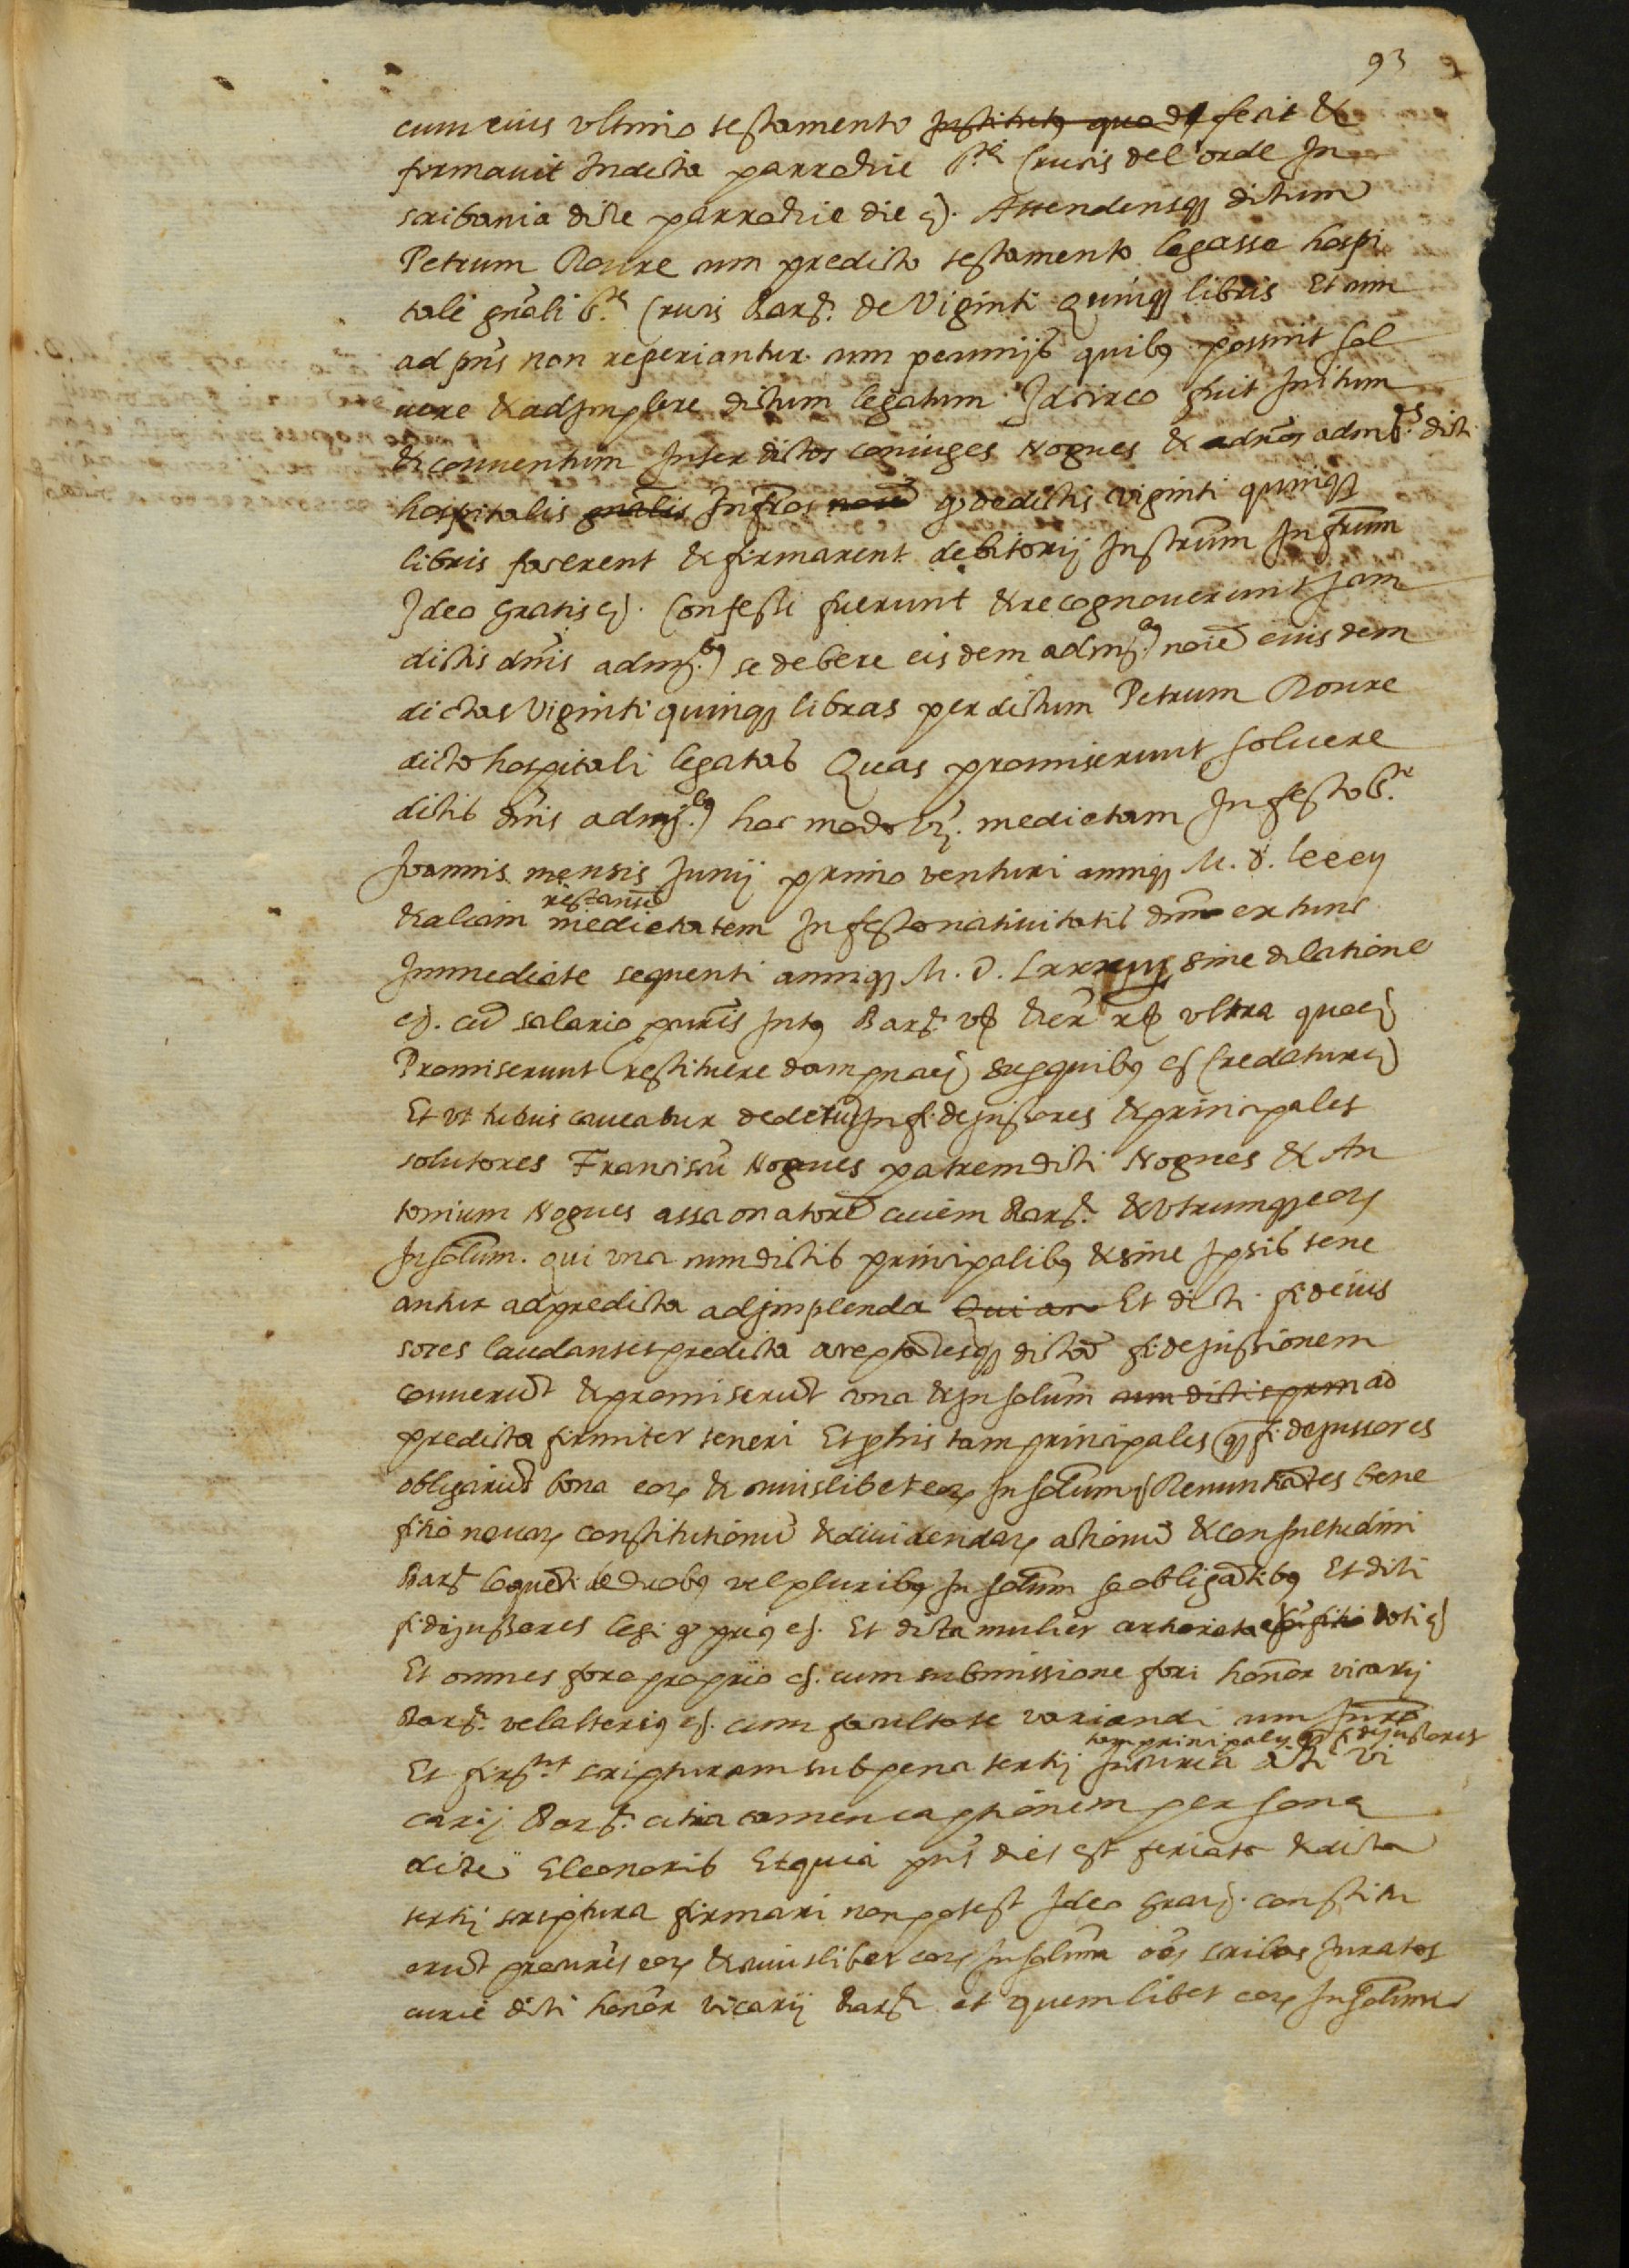 93
cum eius vltimo testamento Institutus quod fecit &
firmauit In dicta parrochie Ste Crucis del orde In
scribania dicte parrochie die &. Attendensq dictum
Petrum Roure cum predicto testamento legasse hospi
tali gnali Ste Crucis Barñ. de Viginti Quinq libris Et cum
ad pñs non reperiantur cum pecunijs quibus possint sol
uere & adjmplere dictum legatum Jdcirco fuit Initum
& conuentum Inter dictos coniuges Nogues & admres dicti
hospitalis gnalis Infros q dedictis viginti quinq
libris facerent & firmarent debitorij Instrum Infrum
Jdeo Gratis &. Confessi fuerunt & recognouerunt jam
dictis dnis adm. se debere eisdem adm. noie eiusdem
dictas Viginti quinq libras per dictum Petrum Roure
dicto hospitali legatas Quas promiserunt soluere
dictis dnis adm. hoc modo vz. medietam In festo St.
Joannis mensis Junij primo venturi anniq M. d.
& aliam restantem medietatem In festo natiuitatis dni ex tunc
Immediate sequenti anniq M. D. sine dilatione
&. cu salario Barñ. vltra que &
Promiserunt restituere dampna & sup quibus & Credatur &
Et vt tutius caueatur dederunt In fidejussores & principales
solutores Franciscu Nogues patrem dicti Nogues & An
tonium Nogues assaonatore ciuem Barñ. & vtrumq eor
In solum. qui vna cum dictis principalibus & sine Ipsis tene
antur ad predicta adjmplenda Qui an Et dicti fideius
sores laudantes predicta acceptatesq dicta fidejussionem
conuerut & promiserut vna & In solum cum dictis prin ad
predicta firmiter teneri Et p his tam principales q fidejussores
obligarut bona eor & cuiuslibet eor In solum & Renuntiates bene
ficio nouar constitutionu & diuidendar actionu & consuetudini
Barñ loqueti de duobus vel pluribus In solum se obligatibus Et dicti
fidejussores legi q prius &. Et dicta mulier doti &
Et omnes foro proprio &. cum submissione fori honor vicarij
Barñ. vel alterius &. cum facultate variandi cum Juro
Et firmt scripturam sub pena tertij tam principales q fidejussores In curia dicti vi
carij Barñ. citra tamen captionem persone
dicte Eleonoris Et quia pñs dies est feriata & dicta
tertij scriptura firmari non potest Jdeo Gratis &. constitu
erut procures eor & cuiuslibet eor In solum oes scribas Juratos
curie dicti honor vicarij Barñ et quemlibet eor In solum